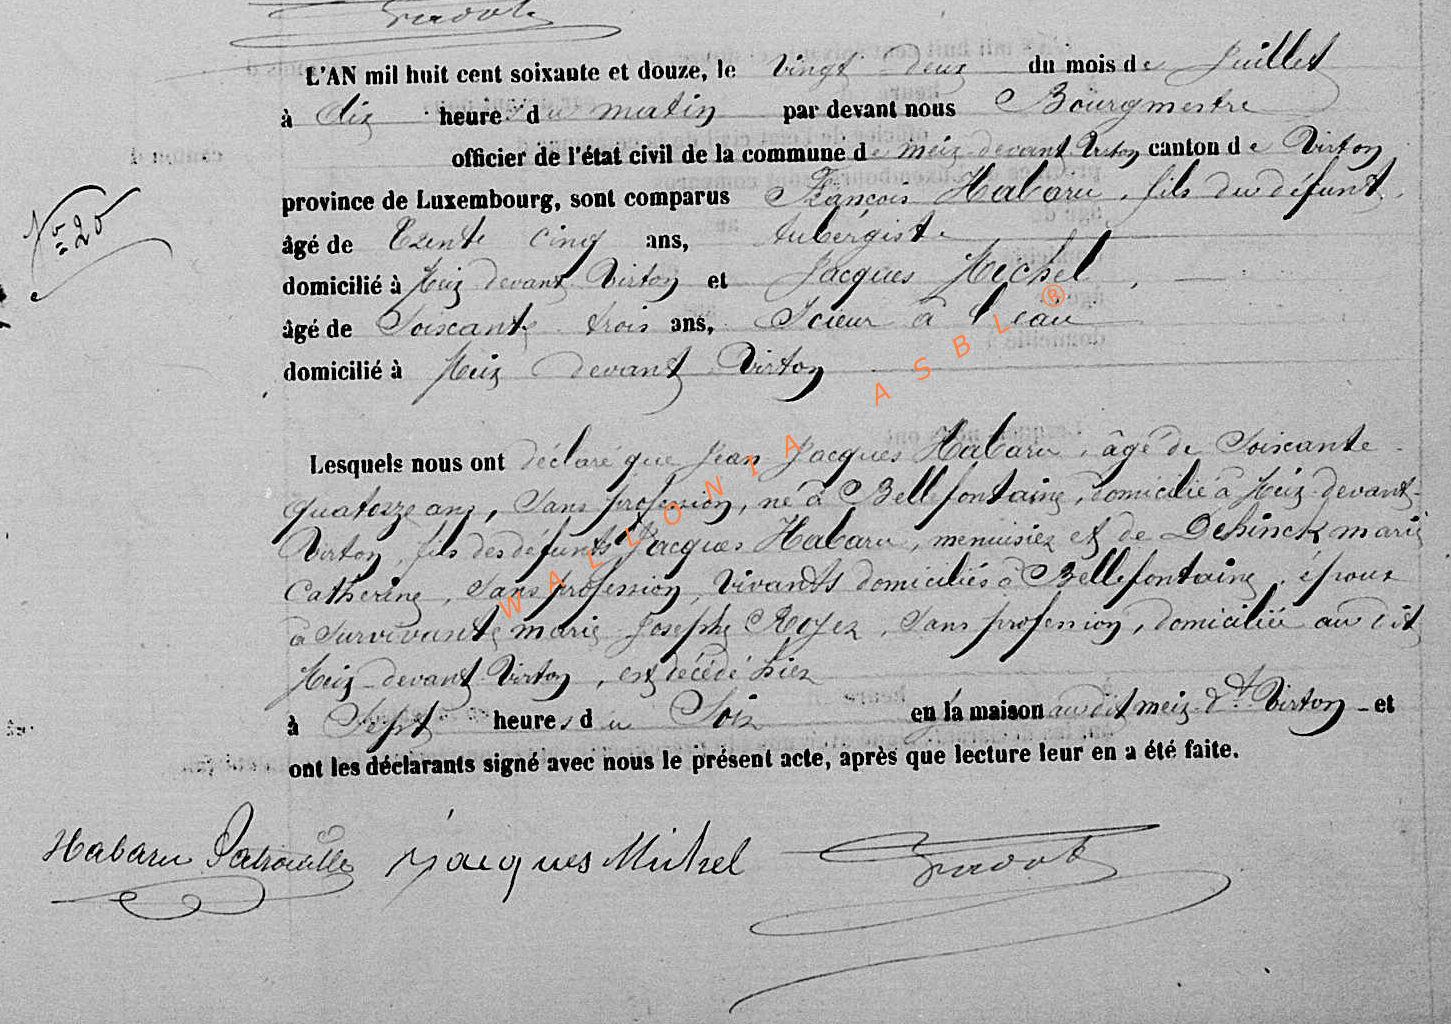 L'AN mil huit cent soixante et douze, le vingt deux du mois de Juillet
à dix heures du matin par devant nous Bourgmestre
officier de l'état civil de la commune de meix devant Virton canton de Virton
N° 20
province de Luxembourg, sont comparus François Habaru, fils du défunt,
âgé de Trente cinq ans, Aubergiste
domicilié à Meix devant Virton et Jacques Michel,
âgé de Soixante trois ans, Scieur à l'eau
domicilié à Meix devant Virton
Lesquels nous ont déclaré que Jean Jacques Habaru, âgé de Soixante
quatorze ans, Sans profession, né à Bellefontaine, domicilié à Meix-devant-
Virton, fils des défunts Jacques Habaru, menuisier et de Dehinck marie
Catherine, Sans profession, vivants domiciliés à Bellefontaine, époux
à survivante marie Josephe Royer, Sans profession, domiciliée au dit
Meix-devant Virton, est décédé hier
à Sept heures du Soir en la maison au dit meix-dt Virton - et
ont les déclarants signé avec nous le présent acte, après que lecture leur en a été faite.
Habaru Jacques Michel
WALLONIA ASBL ®